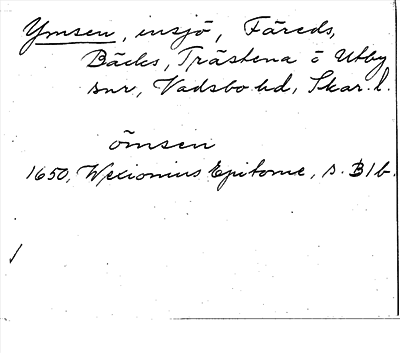 Ymsen, insjö, Färeds,
Bäcks, Trästena o Utby
snr, Vadsbo hd, Skar. l.
ömsen
1650, Wexionius Epitome, s. B1b.